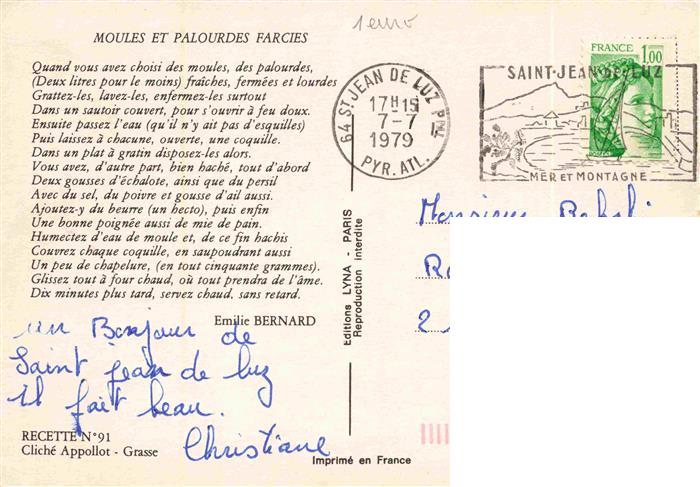 1 euro
MOULES ET PALOURDES FARCIES
Quand vous avez choisi des moules, des palourdes,
(Deux litres pour le moins) fraîches, fermées et lourdes
Grattez-les, lavez-les, enfermez-les surtout
Dans un sautoir couvert, pour s'ouvrir à feu doux.
Ensuite passez l'eau (qu'il n'y ait pas d'esquilles)
Puis laissez à chacune, ouverte, une coquille.
Dans un plat à gratin disposez-les alors.
Vous avez, d'autre part, bien haché, tout d'abord
Deux gousses d'échalote, ainsi que du persil
Avec du sel, du poivre et gousse d'ail aussi.
Ajoutez-y du beurre (un hecto), puis enfin
Une bonne poignée aussi de mie de pain.
Humectez d'eau de moule et, de ce fin hachis
Couvrez chaque coquille, en saupoudrant aussi
Un peu de chapelure, (en tout cinquante grammes).
Glissez tout à four chaud, où tout prendra de l'âme.
Dix minutes plus tard, servez chaud, sans retard.
Emilie BERNARD
un Bonjour de
Saint jean de luz
Il fait beau.
Christiane
RECETTE N°91
Cliché Appollot - Grasse
Imprimé en France
Editions LYNA - PARIS
Reproduction interdite
64 ST JEAN DE LUZ PPAL
17H15
7-7
1979
PYR. ATL.
FRANCE 1,00
SAINT-JEAN-DE-LUZ
MER ET MONTAGNE
Monsieur
2